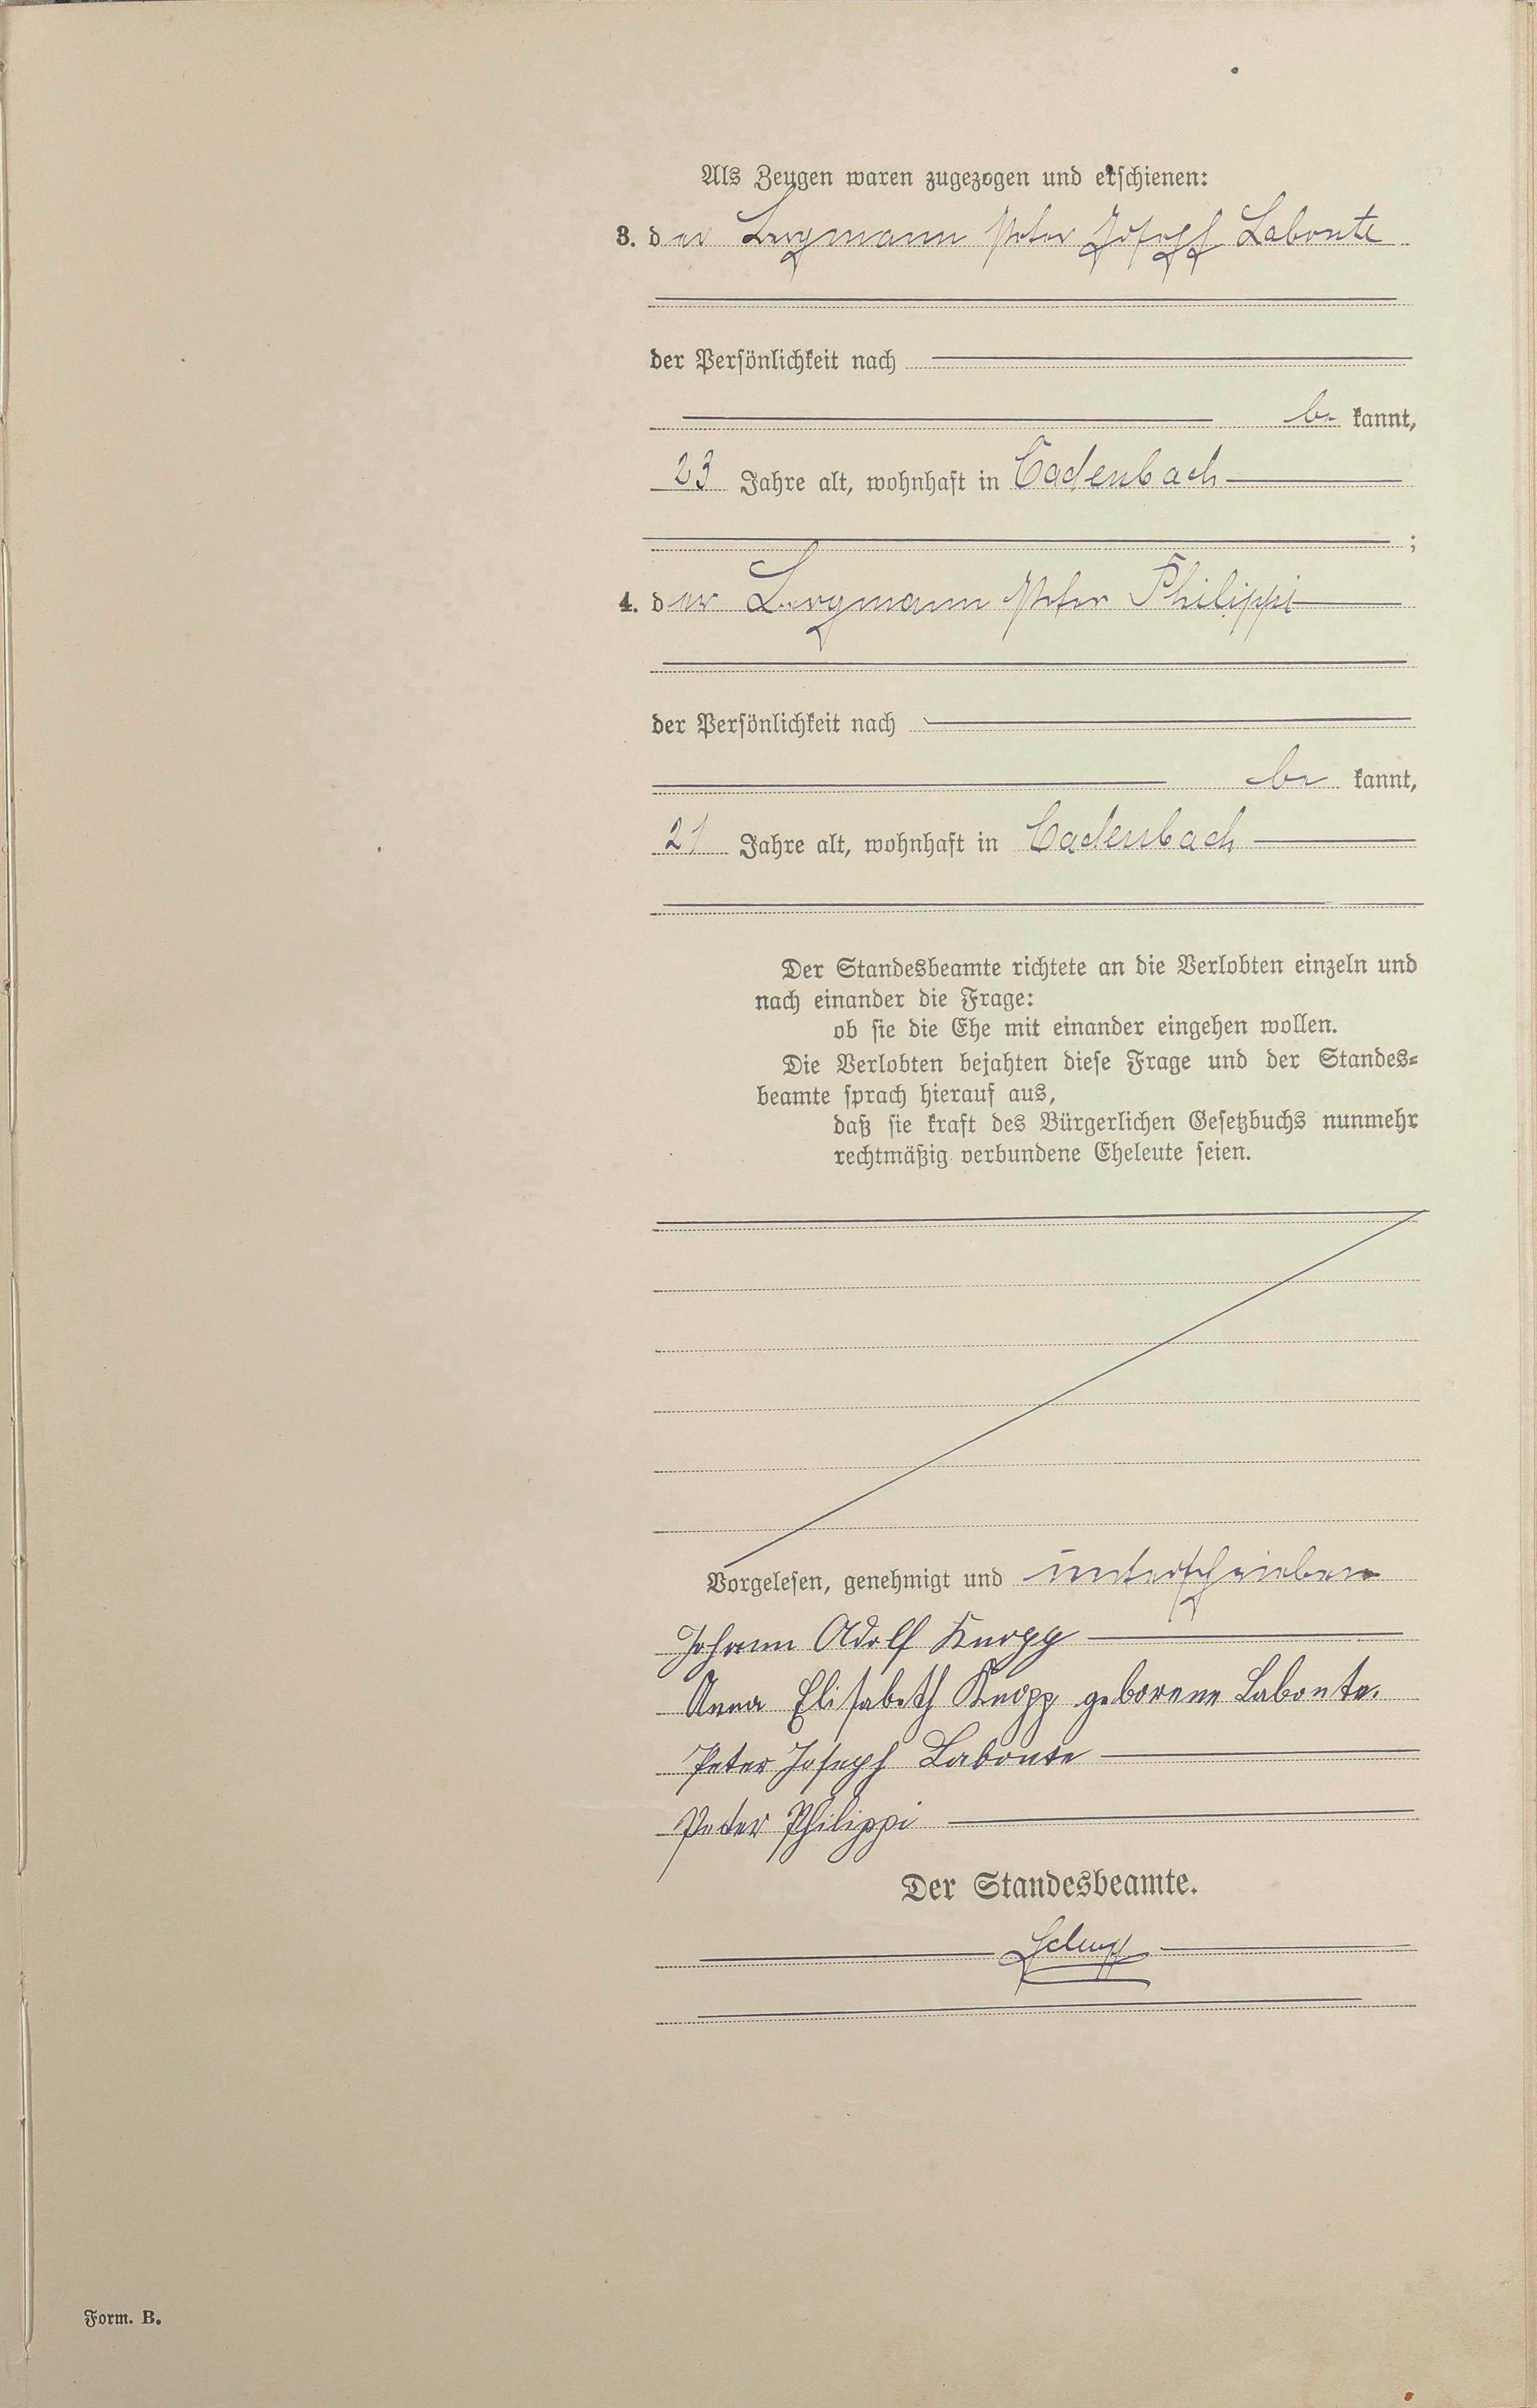 Als Zeugen waren zugezogen und erschienen:
3. der Bergmann Peter Joseph Labonte
der Persönlichkeit nach
be kannt,
23 Jahre alt, wohnhaft in Cadenbach
;
4. der Bergmann Peter Philippi
der Persönlichkeit nach
be kannt,
21 Jahre alt, wohnhaft in Cadenbach
Der Standesbeamte richtete an die Verlobten einzeln und
nach einander die Frage:
ob sie die Ehe mit einander eingehen wollen.
Die Verlobten bejahten diese Frage und der Standes-
beamte sprach hierauf aus,
daß sie kraft des Bürgerlichen Gesetzbuchs nunmehr
rechtmäßig verbundene Eheleute seien.
Vorgelesen, genehmigt und unterschrieben
Johann Adolf Knopp
Anna Elisabeth Knopp geborene Labonte.
Peter Joseph Labonte
Peter Philippi
Der Standesbeamte.
Form. B.